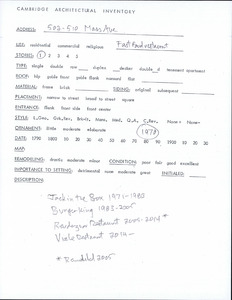 CAMBRIDGE ARCHITECTURAL INVENTORY
ADDRESS: 502-510 Mass Ave
USE: residential commercial religious Fast Food restaurant
STORIES: 1 2 3 4 5
TYPE: single double row duplex decker double d tenement apartment
ROOF: hip gable flank gambrel flat
MATERIAL: frame brick SIDING: original subsequent
PLACEMENT: narrow to street broad to street square
ENTRANCE: flank front side front center
ORNAMENT: little moderate elaborate
1970
DATE: 1790 1800 10 20 30 40 50 60 70 80 90 1900 10 20 30
MAP:
REMODELING: drastic moderate minor CONDITION: poor fair good excellent
IMPORTANCE TO SETTING: detrimental none moderate great INITIALED:
DESCRIPTION:
Jack in the Box 1971-1980
Burger King 1983-2005
Restaurant 2005-2014 *
Restaurant 2014-
* Remodeled 2005